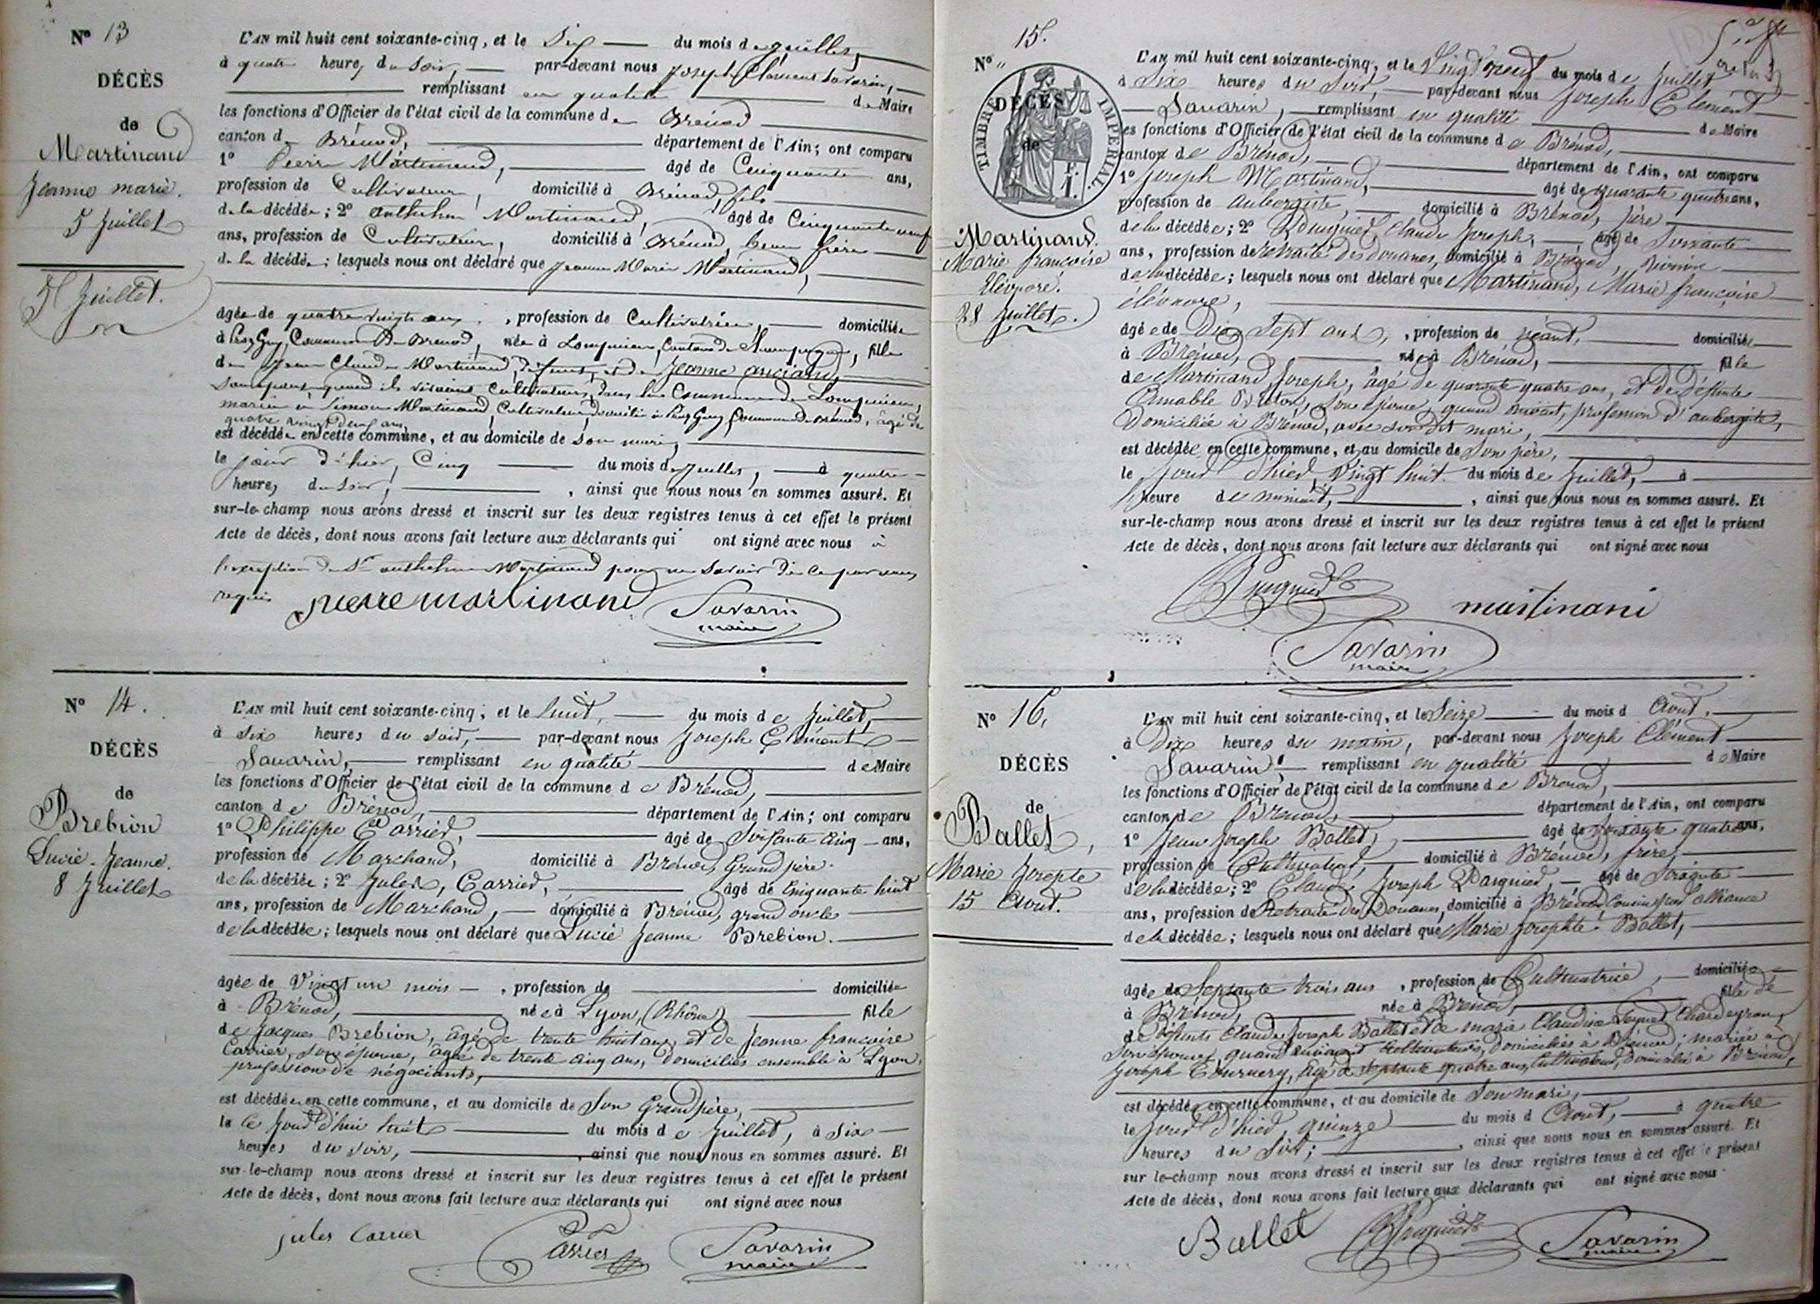 N° 13
DÉCÈS
de
Martinand
Jeanne marie.
5 Juillet
5 Juillet.
L'AN mil huit cent soixante-cinq, et le Six du mois de juillet,
à quatre heures du soir, par-devant nous Joseph Clément Savarin,
remplissant en qualité de Maire
les fonctions d'Officier de l'état civil de la commune de Brénod
canton de Brénod, département de l'Ain; ont comparu
1° Pierre Martinand, âgé de Cinquante ans,
profession de Cultivateur, domicilié à Brénod, fils
de la décédée; 2° anthelme Martinand, âgé de Cinquante neuf
ans, profession de Cultivateur, domicilié à Brénod, beau frère
de la décédée; lesquels nous ont déclaré que Jeanne Marie Martinand,
âgée de quatre vingts ans, profession de Cultivatrice, domiciliée
à Commune de Brénod, née à Lompnieu, Canton de Champagne, fille
de Jean Claude Martinand, défunt, et de Jeanne anciand,
quand ils vivaient Cultivateurs, dans la Commune de Lompnieu,
mariée à Simon Martinand Cultivateur domicilié à Commune de Brénod, âgé de
quatre vingt deux ans
est décédée en cette commune, et au domicile de son mari,
le jour d'hier, Cinq du mois de juillet, à quatre
heures du soir, ainsi que nous nous en sommes assuré. Et
sur-le-champ nous avons dressé et inscrit sur les deux registres tenus à cet effet le présent
Acte de décès, dont nous avons fait lecture aux déclarants qui ont signé avec nous à
l'exception de Sr anthelme Martinand pour ne savoir de ce par nous
requis
pierre martinand
Savarin
maire
N° 14.
DÉCÈS
de
Brebion
Lucie-Jeanne.
8 Juillet
L'AN mil huit cent soixante-cinq, et le huit, du mois de Juillet,
à six heures du soir, par-devant nous Joseph Clément
Savarin, remplissant en qualité de Maire
les fonctions d'Officier de l'état civil de la commune de Brénod,
canton de Brénod, département de l'Ain; ont comparu
1° Philippe Carrier, âgé de Soixante cinq ans,
profession de Marchand, domicilié à Brénod, Grand père
de la décédée; 2° Jules, Carrier, âgé de Cinquante huit
ans, profession de Marchand, domicilié à Brénod, grand oncle
de la décédée; lesquels nous ont déclaré que Lucie Jeanne Brebion.
âgée de Vingt un mois, profession de domiciliée
à Brénod, née à Lyon, (Rhône) fille
de Jacques Brebion, âgé de trente huit ans, et de Jeanne françoise
Carrier, son épouse, âgée de trente cinq ans, domiciliés ensemble à Lyon,
profession de négociants,
est décédée en cette commune, et au domicile de Son Grand père,
le Ce jour d'hui huit du mois de Juillet, à six
heures du soir, ainsi que nous nous en sommes assuré. Et
sur-le-champ nous avons dressé et inscrit sur les deux registres tenus à cet effet le présent
Acte de décès, dont nous avons fait lecture aux déclarants qui ont signé avec nous
jules Carrier
Carrier
Savarin
maire
15.
N° "
DÉCÈS
de
TIMBRE IMPÉRIAL
1 F.
Martinand.
Marie françoise
Eléonore.
28 Juillet.
L'AN mil huit cent soixante-cinq, et le Vingt neuf du mois de Juillet
à Six heures du soir, par-devant nous Joseph Clément
Savarin, remplissant en qualité de Maire
les fonctions d'Officier de l'état civil de la commune de Brénod,
canton de Brénod, département de l'Ain, ont comparu
1° Joseph Martinand, âgé de quarante quatre ans,
profession de aubergiste, domicilié à Brénod, père
de la décédée; 2° Claude Joseph, âgé de Soixante
ans, profession de retraité des Douanes, domicilié à Brénod,
de la décédée; lesquels nous ont déclaré que Martinand, Marie françoise
éléonore,
âgée de Dix Sept ans, profession de néant, domiciliée
à Brénod, née à Brénod, fille
de Martinand, Joseph, âgé de quarante quatre ans, et de Défunte
son épouse, quand vivait, profession d'aubergiste,
Domiciliée à Brénod, avec son dit mari,
est décédée en cette commune, et au domicile de Son père,
le Jour d'hier, Vingt huit du mois de Juillet, à
heure de minuit, ainsi que nous nous en sommes assuré. Et
sur-le-champ nous avons dressé et inscrit sur les deux registres tenus à cet effet le présent
Acte de décès, dont nous avons fait lecture aux déclarants qui ont signé avec nous
martinand
Savarin
maire
N° 16,
DÉCÈS
de
Ballet,
Marie Josephte
15 Aout.
L'AN mil huit cent soixante-cinq, et le Seize du mois d Aout.
à Dix heures du matin, par-devant nous Joseph Clément
Savarin, remplissant en qualité de Maire
les fonctions d'Officier de l'état civil de la commune de Brénod,
canton de Brénod, département de l'Ain, ont comparu
1° Jean Joseph Ballet, âgé de soixante quatre ans,
profession de Cultivateur, domicilié à Brénod, frère,
de la décédée; 2° Claude Joseph âgé de Soixante
ans, profession de Retraité des Douanes, domicilié à Brénod Cousin par alliance
de la décédée; lesquels nous ont déclaré que Marie Josephte Ballet,
âgée de Septante trois ans, profession de Cultivatrice, domiciliée
à Brénod, née à Brénod, fille de
défunts Claude Joseph Ballet et de marie Claudine
Son épouse, quand vivaient Cultivateurs, domiciliés à Brénod; mariée à
Joseph Tournery, âgé de septante quatre ans, Cultivateur, domicilié à Brénod,
est décédée en cette commune, et au domicile de Son mari,
le Jour d'hier, quinze du mois d Aout, à quatre
heures du Soir; ainsi que nous nous en sommes assuré. Et
sur-le-champ nous avons dressé et inscrit sur les deux registres tenus à cet effet le présent
Acte de décès, dont nous avons fait lecture aux déclarants qui ont signé avec nous
Ballet
Savarin
maire